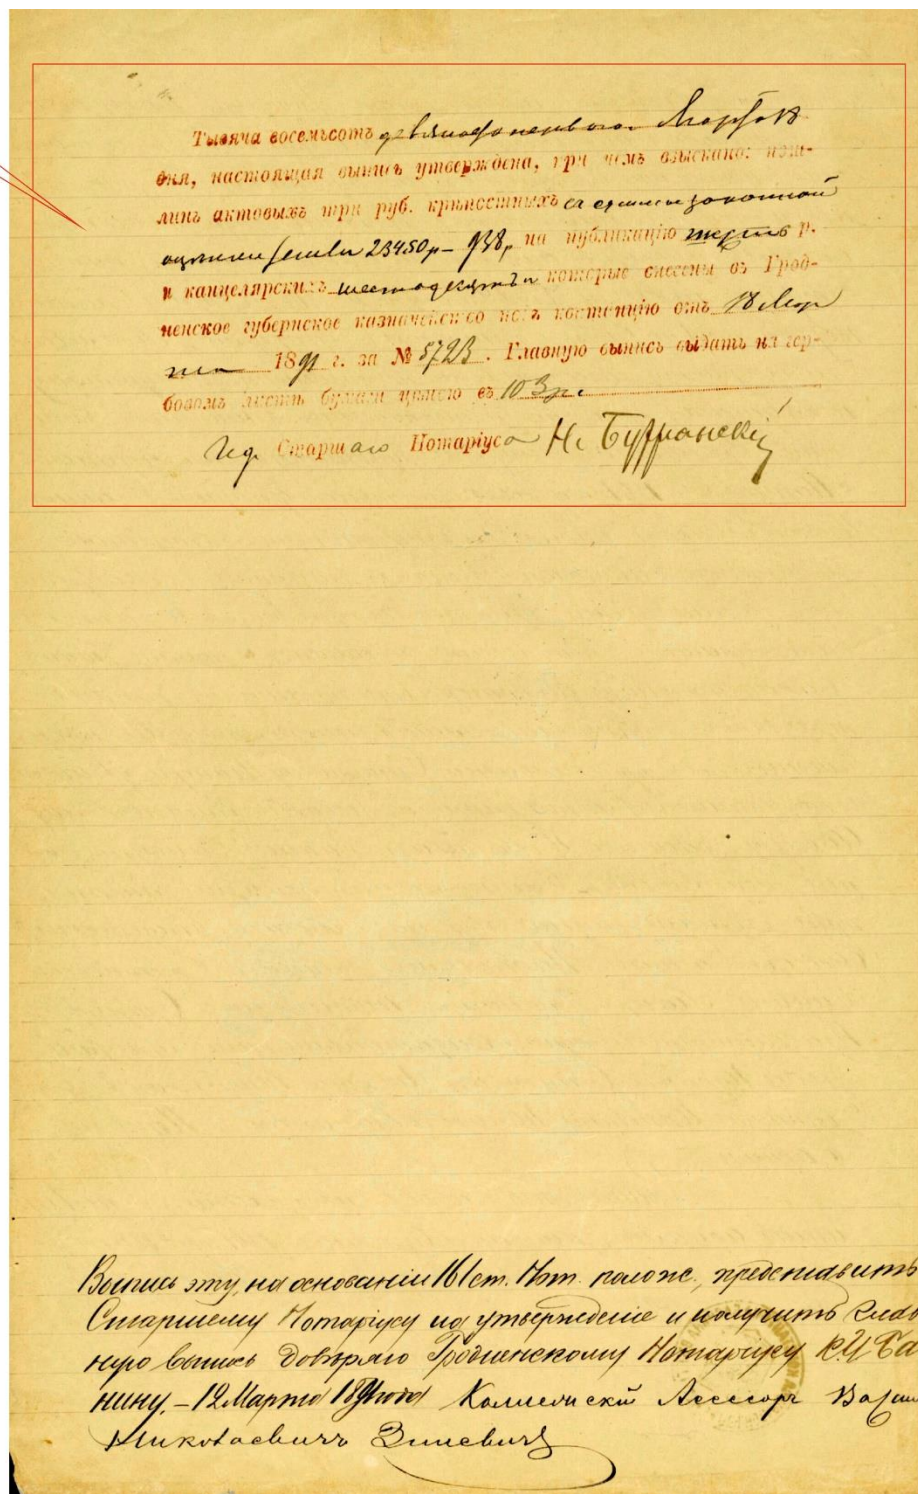 Тысяча восемьсотъ девяносто перваго Марта 18
дня, настоящая выпись утверждена, при чемъ взыскано: пош-
линъ актовыхъ три руб. крѣпостныхъ съ суммы законной
оцѣнки земли 23450 р – 938 р на публикацію р.
и канцелярскихъ которые внесены въ Грод-
ненское губернское казначейство подъ квитанцію отъ 18 Мар
та 1891 г. за № 5723. Главную выпись выдать на гер-
бовомъ листѣ бумаги цѣною въ 103 р.
И.д. Старшаго Нотаріуса Н.
Выпись эту, на основаніи 161 ст. Нот. полож., представить
Старшему Нотаріусу на утвержденіе и получить глав
ную выпись довѣряю Гродненскому Нотаріусу К. И. Ба
нину. – 12 Марта 1891 года Коллежскій Ассесоръ
Николаевичъ Зиневичъ